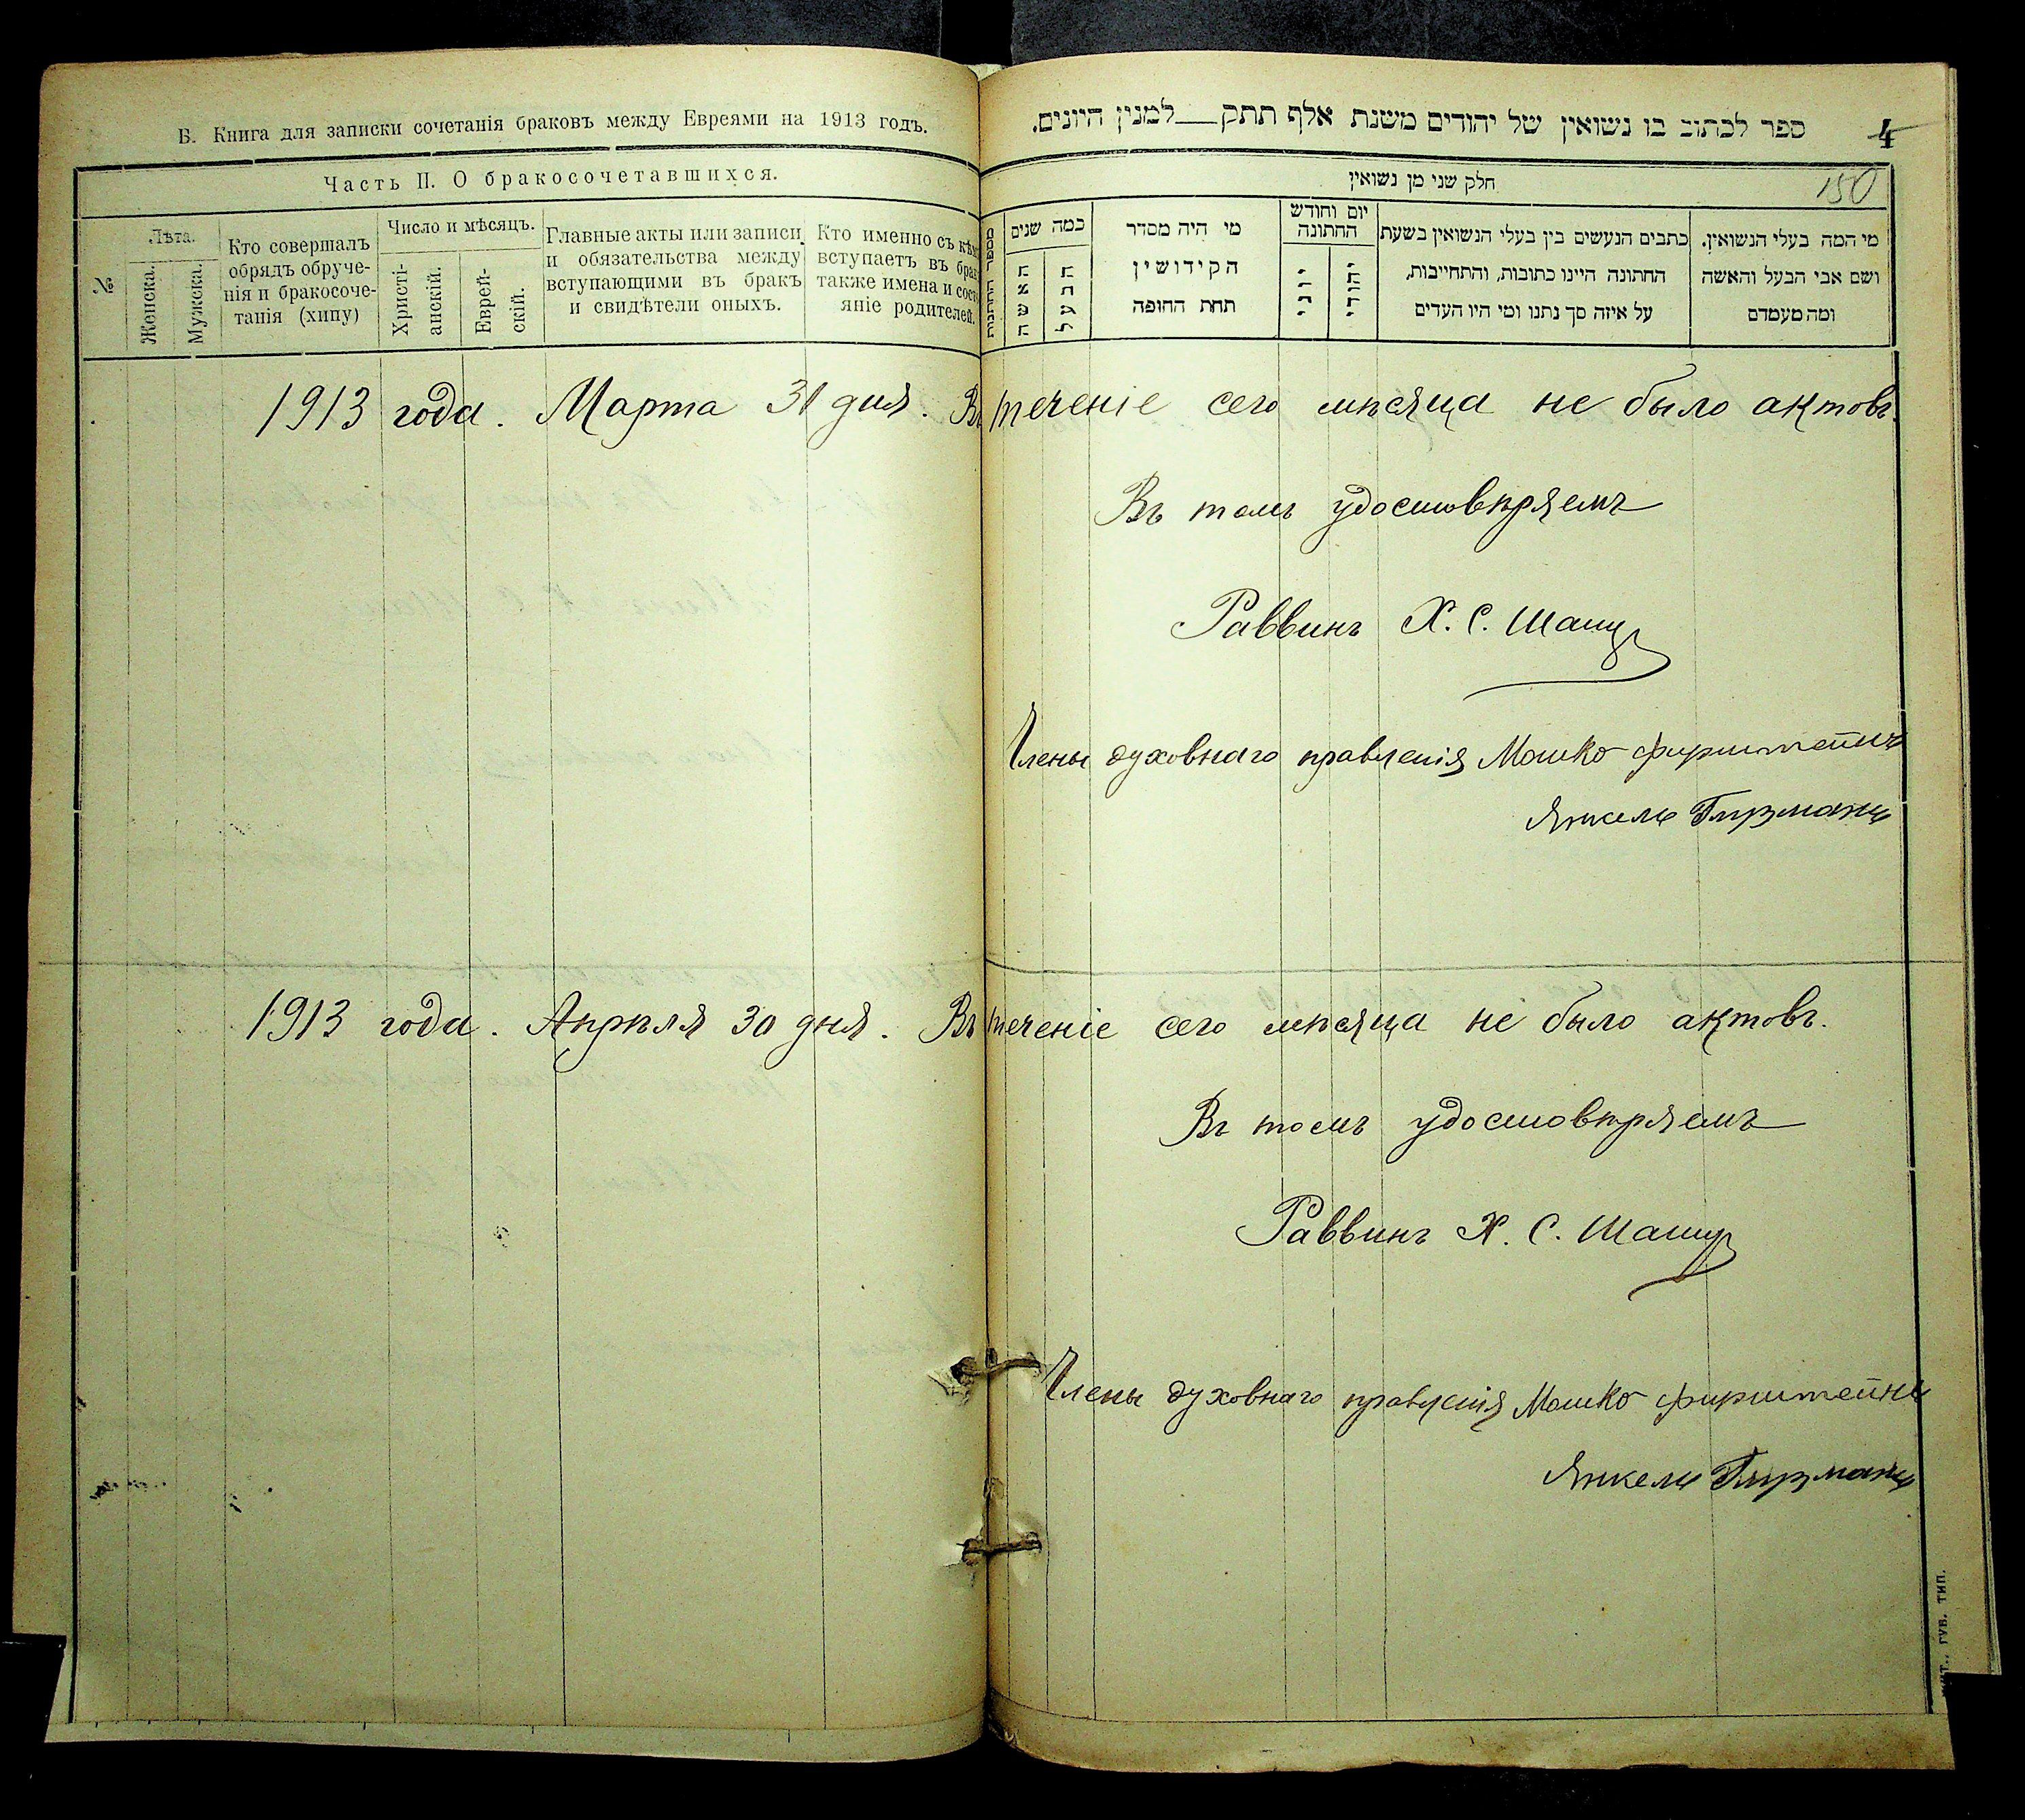 Б. Книга для записки сочетанія браковъ между Евреями на 1913 годъ.
Часть II. О бракосочетавшихся.
№
Лѣта.
Женска.
Мужска.
Кто совершалъ
обрядъ обруче-
нія и бракосоче-
танія (хипу)
Число и мѣсяцъ.
Христі-
анскій.
Еврей-
скій.
Главные акты или записи
и обязательства между
вступающими въ бракъ
и свидѣтели оныхъ.
Кто именно съ кѣмъ
вступаетъ въ бракъ
также имена и состо
яніе родителей.
4
ספר לכתוב בו נשואין של יהודים משנת אלף תתק למנין היונים.
חלק שני מן נשואין
150
מספר החתונות
כמה שנים
האשה
הבעל
מי היה מסדר
הקידושין
תחת החופה
יום וחודש
החתונה
יוני
יהודי
כתבים הנעשים בין בעלי הנשואין בשעת
החתונה היינו כתובות, והתחייבות,
על איזה סך נתנו ומי היו העדים
מי המה בעלי הנשואין.
ושם אבי הבעל והאשה
ומה מעמדם
1913 года. Марта 31 дня. Въ теченіе сего мѣсяца не было актовъ.
Въ томъ удостовѣряемъ
Раввинъ Х. С. Шапир
Члены духовнаго правленія Мошко Фирштейнъ
Янкель Гирзманъ
1913 года. Апрѣля 30 дня. Въ теченіе сего мѣсяца не было актовъ.
Въ томъ удостовѣряемъ
Раввинъ Х. С.
Члены духовнаго правленія Мошко Фирштейнъ
Янкель
ГУБ. ТИП.